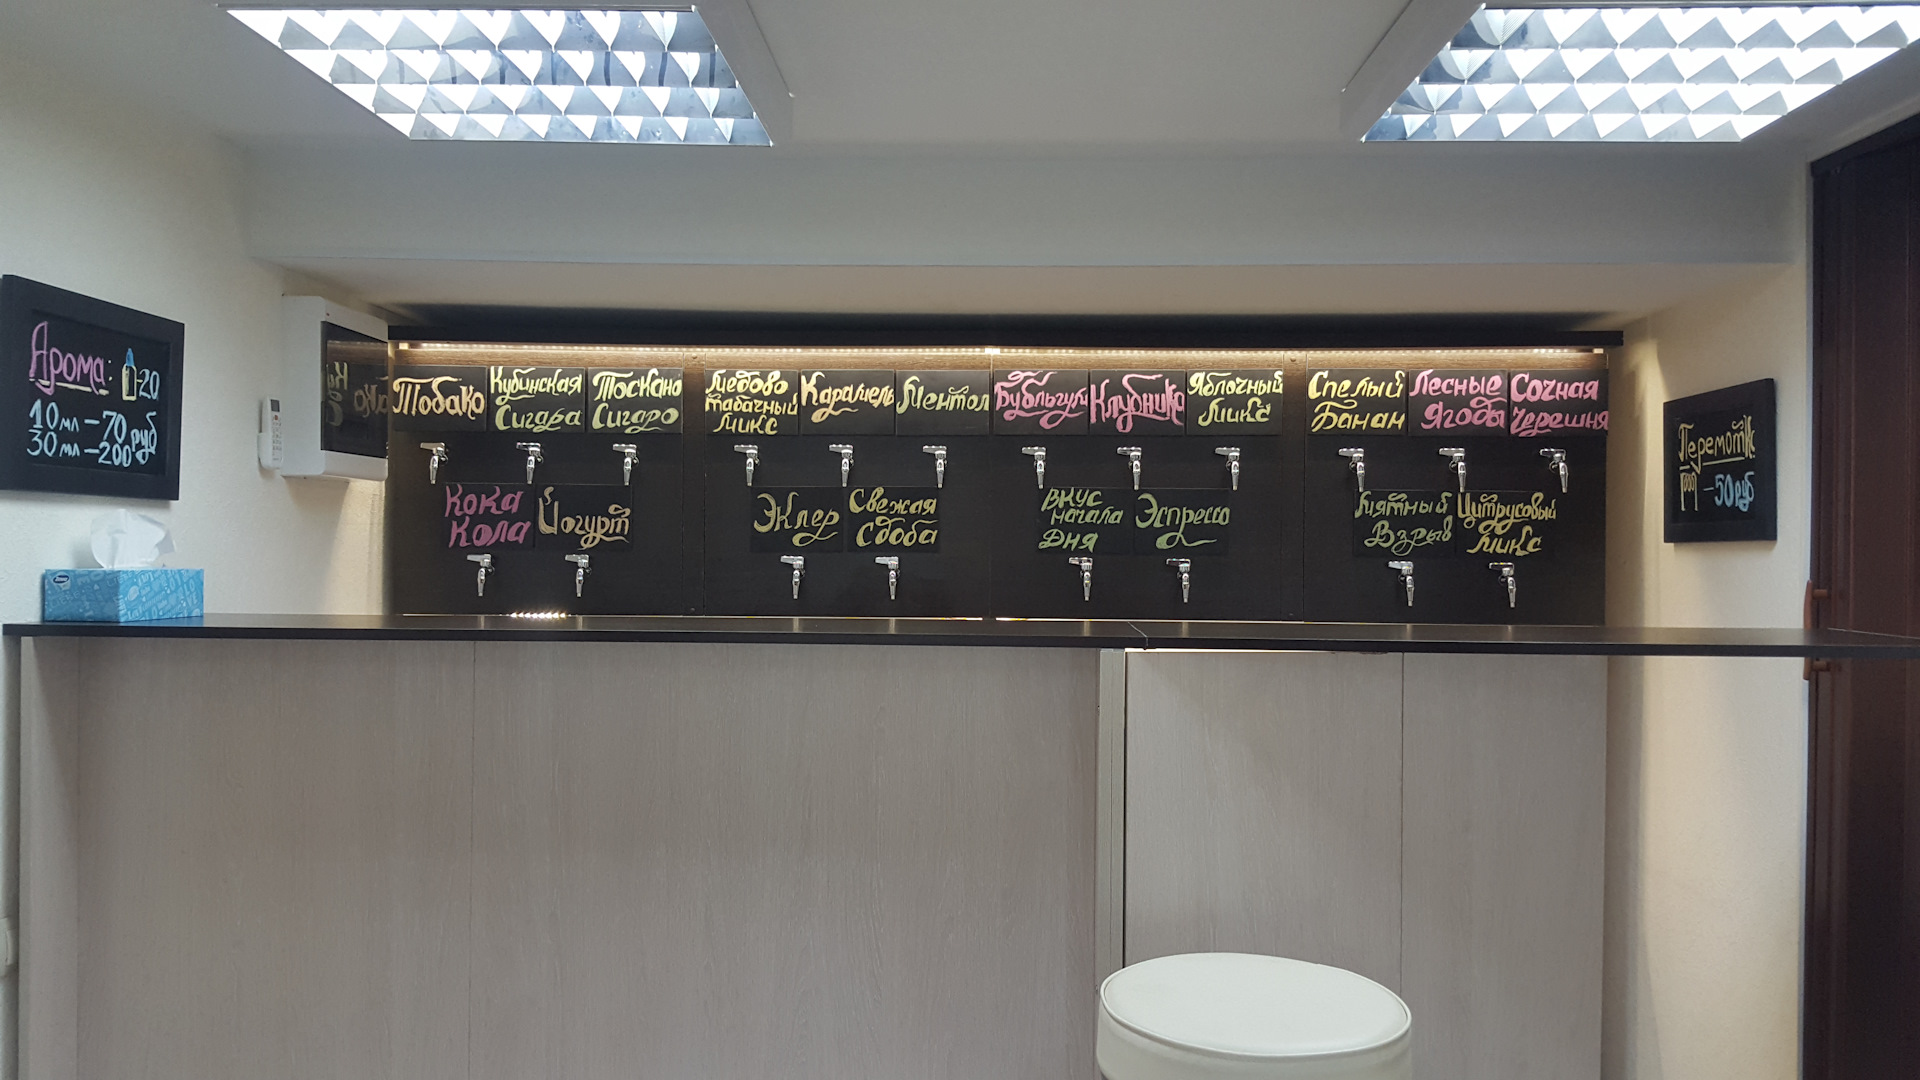 Арома: -20
10 мл - 70 руб
30 мл - 200
Тобако
Кубинская
Сигара
Тоскано
Сигаро
Медово
табачный
микс
Карамель
Ментол
Бубльгум
Клубника
Яблочный
Микс
Спелый
Банан
Лесные
Ягоды
Сочная
Черешня
Кока
Кола
Йогурт
Эклер
Свежая
сдоба
Вкус
начала
Дня
Эспрессо
Мятный
Взрыв
Цитрусовый
микс
Перемотка
-50 руб